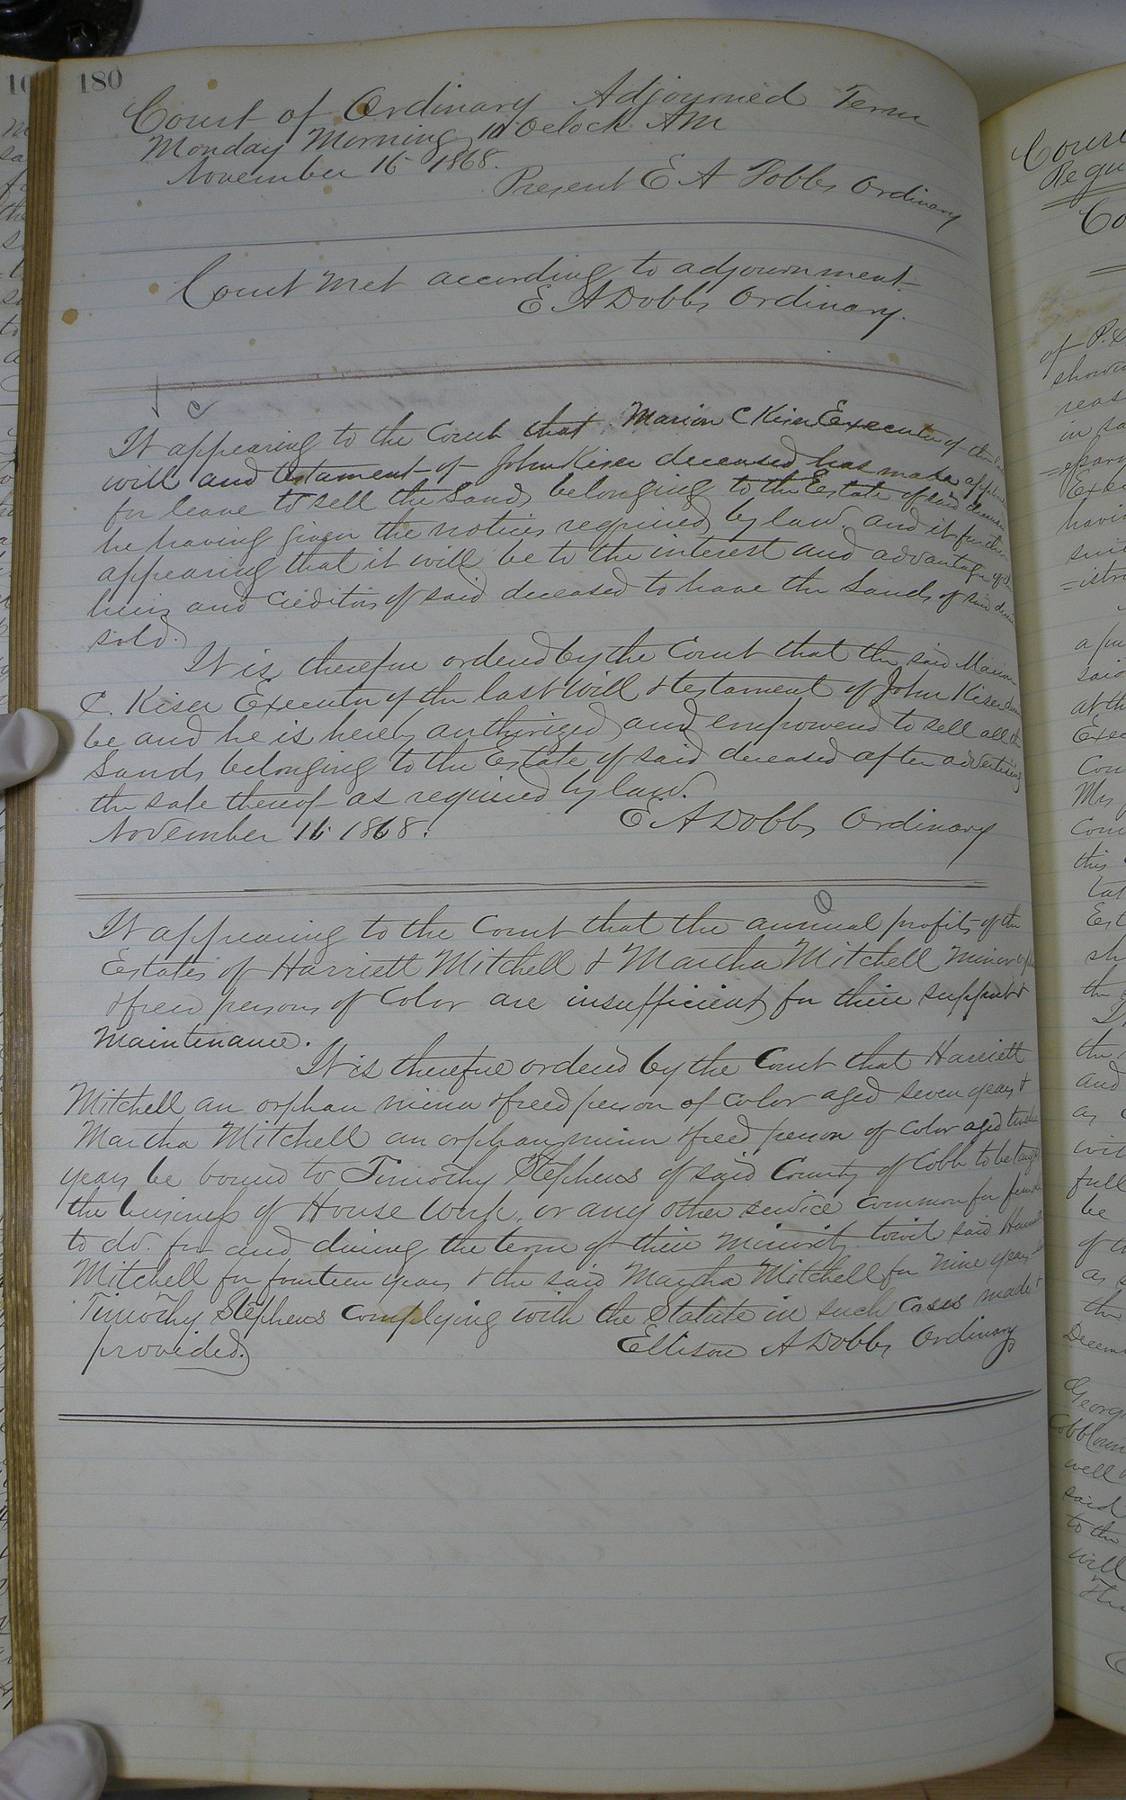 180
Court of Ordinary Adjourned Term
Monday Morning 10 Oclock AM
November 16 1868.
Present E A Dobbs Ordinary
Court Met according to adjournment
E A Dobbs Ordinary.
It appearing to the Court that Marion C Kiser Executor of the
will and testament of John Kiser deceased has made
for leave to sell the Lands belonging to the Estate of said
he having given the notices required by law and it further
appearing that it will be to the interest and advantage of
heirs and Creditors of said deceased to have the Lands of said
sold.
It is therefore ordered by the Court that the said Marion
C. Kiser Executor of the last Will & testament of John Kiser
be and he is hereby authorized and empowered to sell all the
Lands belonging to the Estate of said deceased after advertising
the sale thereof as required by law.
November 16 1868. E. A Dobbs Ordinary
It appearing to the Court that the annual profits of the
Estates of Harriett Mitchell & Martha Mitchell minor
freed persons of Color are insufficient for their support &
Maintenance.
It is therefore ordered by the Court that Harriett
Mitchell an orphan minor & freed person of color aged seven years &
Martha Mitchell an orphan minor & freed person of color aged twelve
years be bound to Timothy Stephens of said County of Cobb to be taught
the business of House Work, or any other service common for
to do. for and during the term of their minority towit said
Mitchell for fourteen years & the said Martha Mitchell for nine years
Timothy Stephens complying with the Statute in such cases made &
provided. Ellison A Dobbs Ordinary